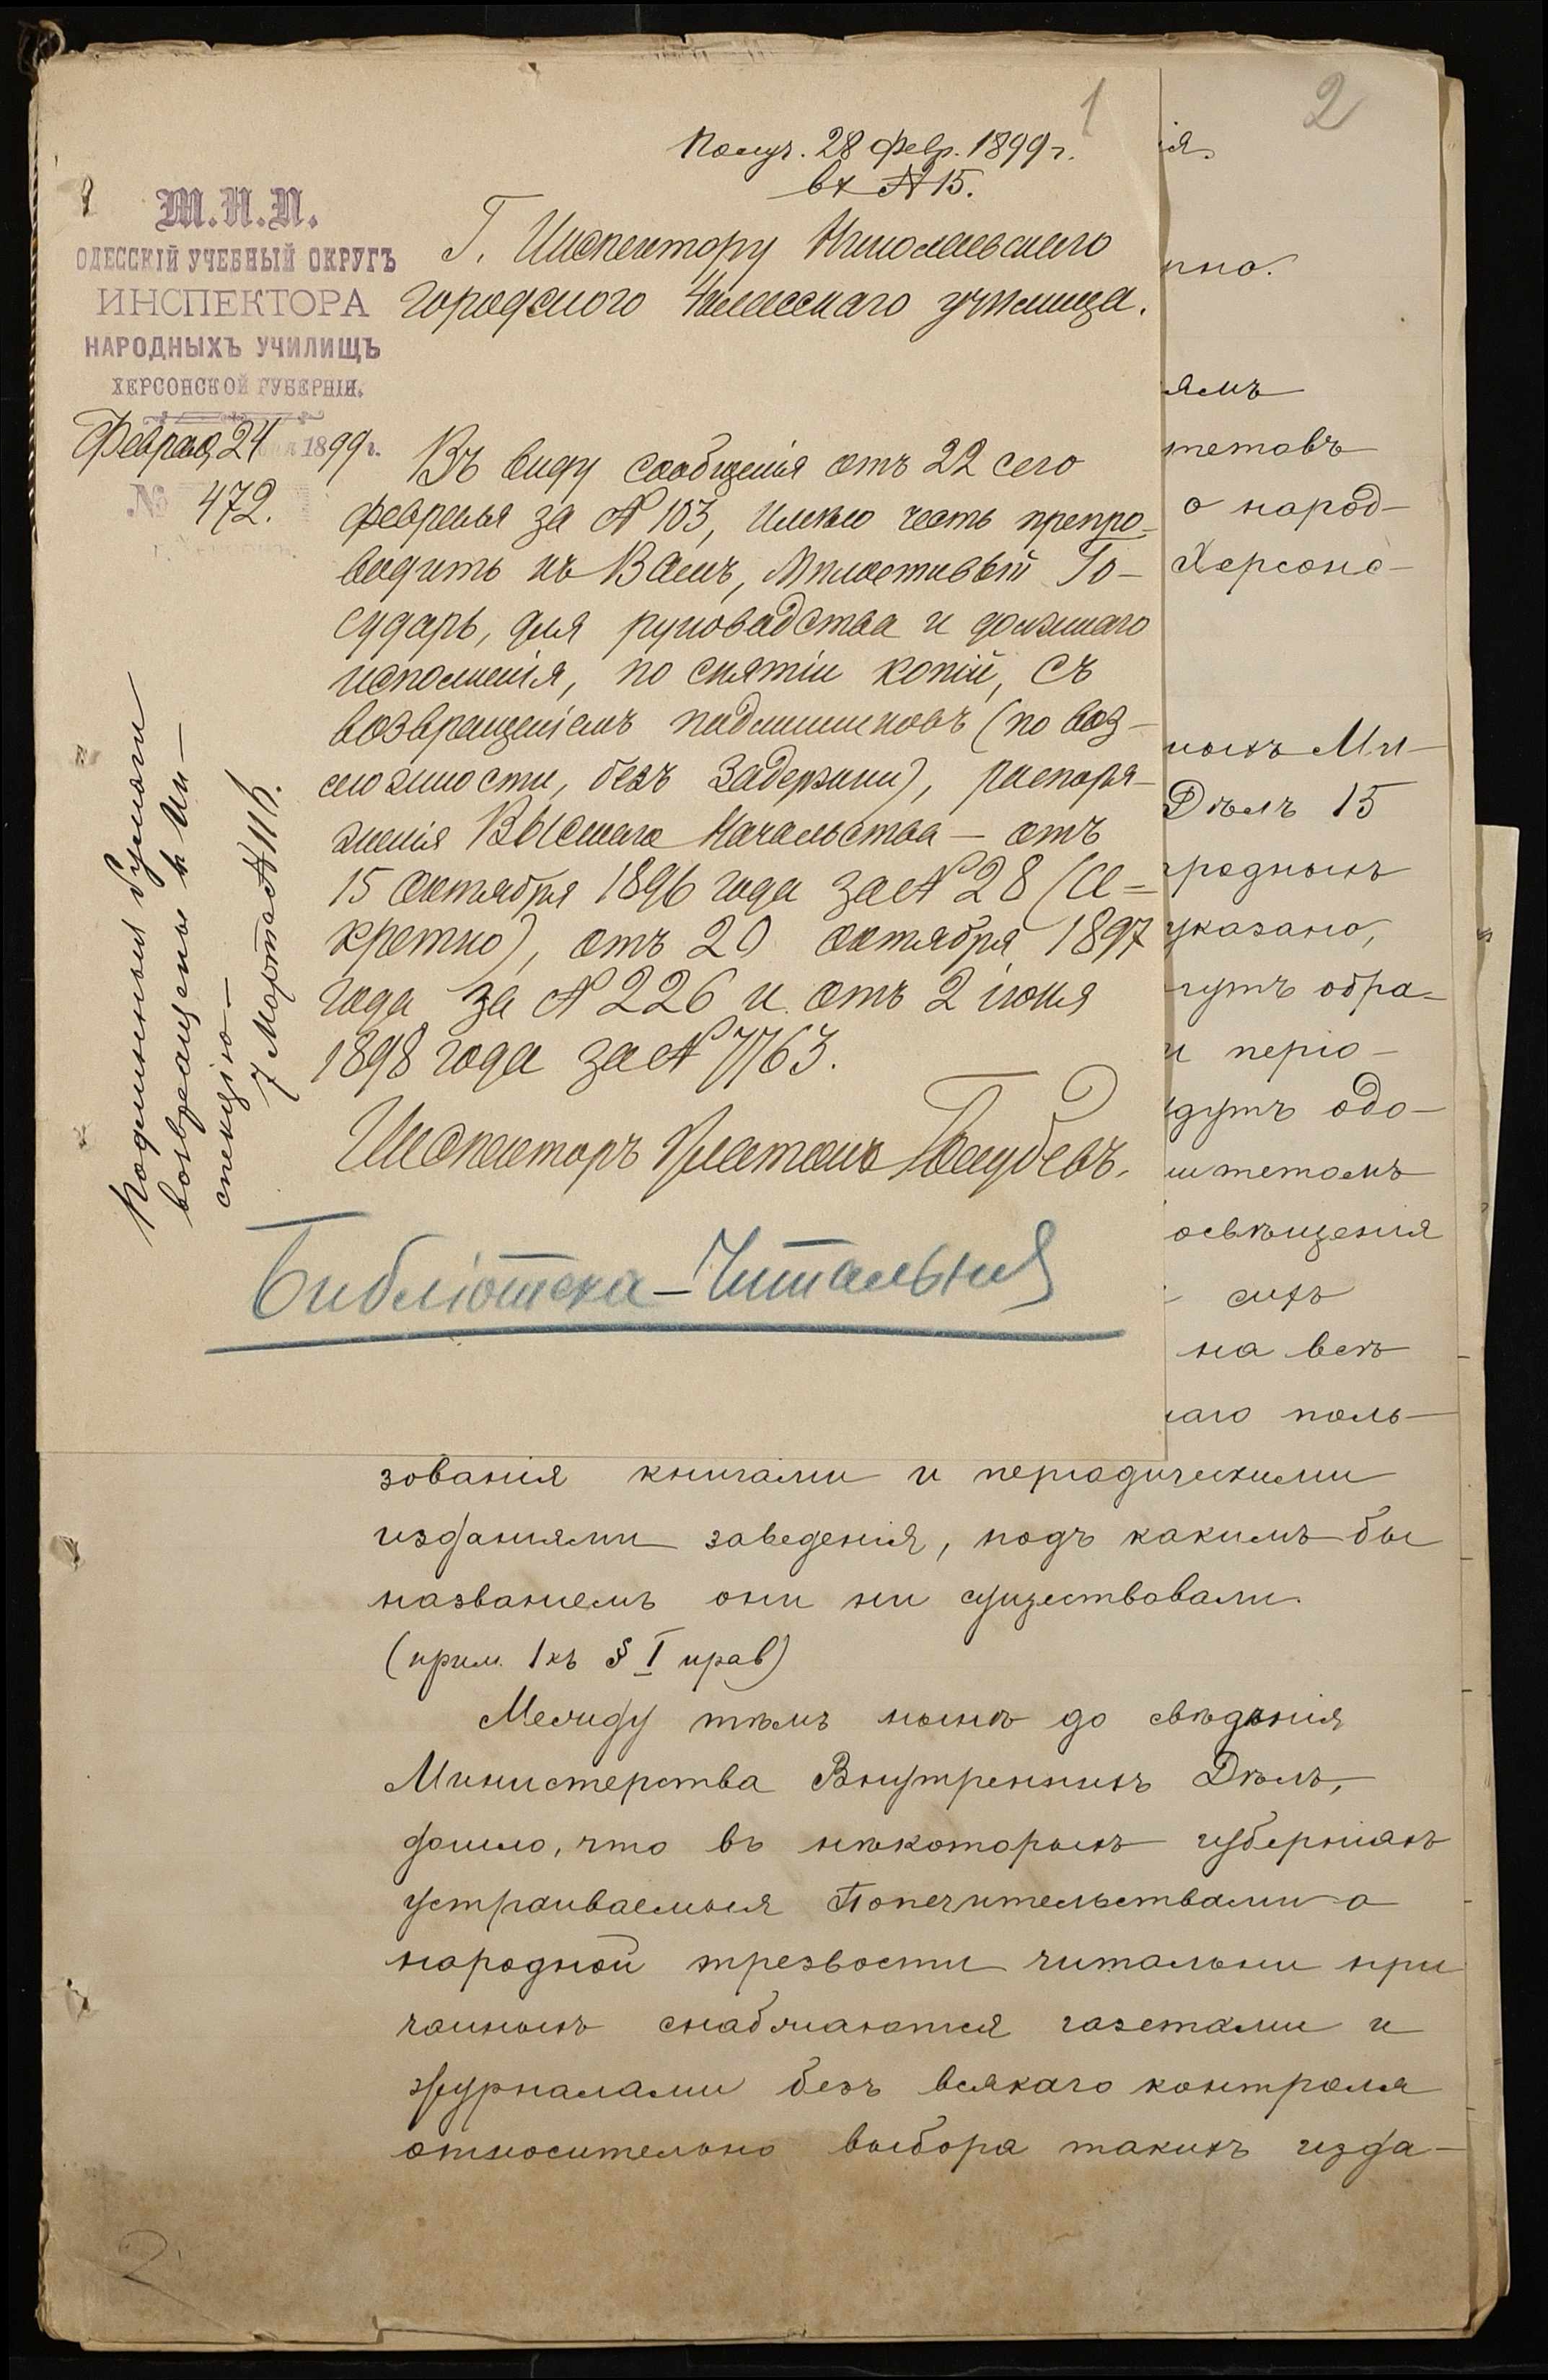 1
2
Получ. 28 Февр. 1899 г.
вх № 15.
М.Н.П.
ОДЕССКІЙ УЧЕБНЫЙ ОКРУГЪ
ИНСПЕКТОРА
НАРОДНЫХЪ УЧИЛИЩЪ
ХЕРСОНСКОЙ ГУБЕРНІИ.
Февраля 24 1899 г.
№ 472.
Г. Инспектору Николаевскаго
городского 4класснаго училища.
Въ виду сообщенія отъ 22 сего
февраля за № 103, имѣю честь препро-
водить къ Вамъ, Милостивый Го-
сударь, для руководства и должнаго
исполненія, по снятіи копій, съ
возвращеніемъ подлинниковъ (по воз-
можности, безъ задержки), распоря-
женія Высшаго Начальства – отъ
15 октября 1896 года за № 28 (се=
кретно), отъ 20 октября 1897
года за № 226 и отъ 2 іюня
1898 года за № 7763.
Инспекторъ Платонъ
Подлинныя бумаги
возвращены г. Ин-
спекцію –
7 Марта № 116.
Библіотека-Читальня
ія.
пно.
ямъ
тетовъ
о народ-
Херсонс-
ныхъ Ми-
Дѣлъ 15
родныхъ
указано,
гутъ обра=
и періо-
дутъ одо-
митетомъ
освѣщенія
сихъ
на всѣ
наго поль-
зованія книгами и періодическими
изданіями заведенія, подъ какимъ бы
названіемъ они ни существовали.
(прим. 1 къ § I прав)
Между тѣмъ нынѣ до свѣдѣнія
Министерства Внутреннихъ Дѣлъ,
дошло, что въ нѣкоторыхъ губерніяхъ
устраиваемыя Попечительствами о
народной трезвости читальни при
чайныхъ снабжаются газетами и
журналами безъ всякаго контроля
относительно выбора такихъ изда-